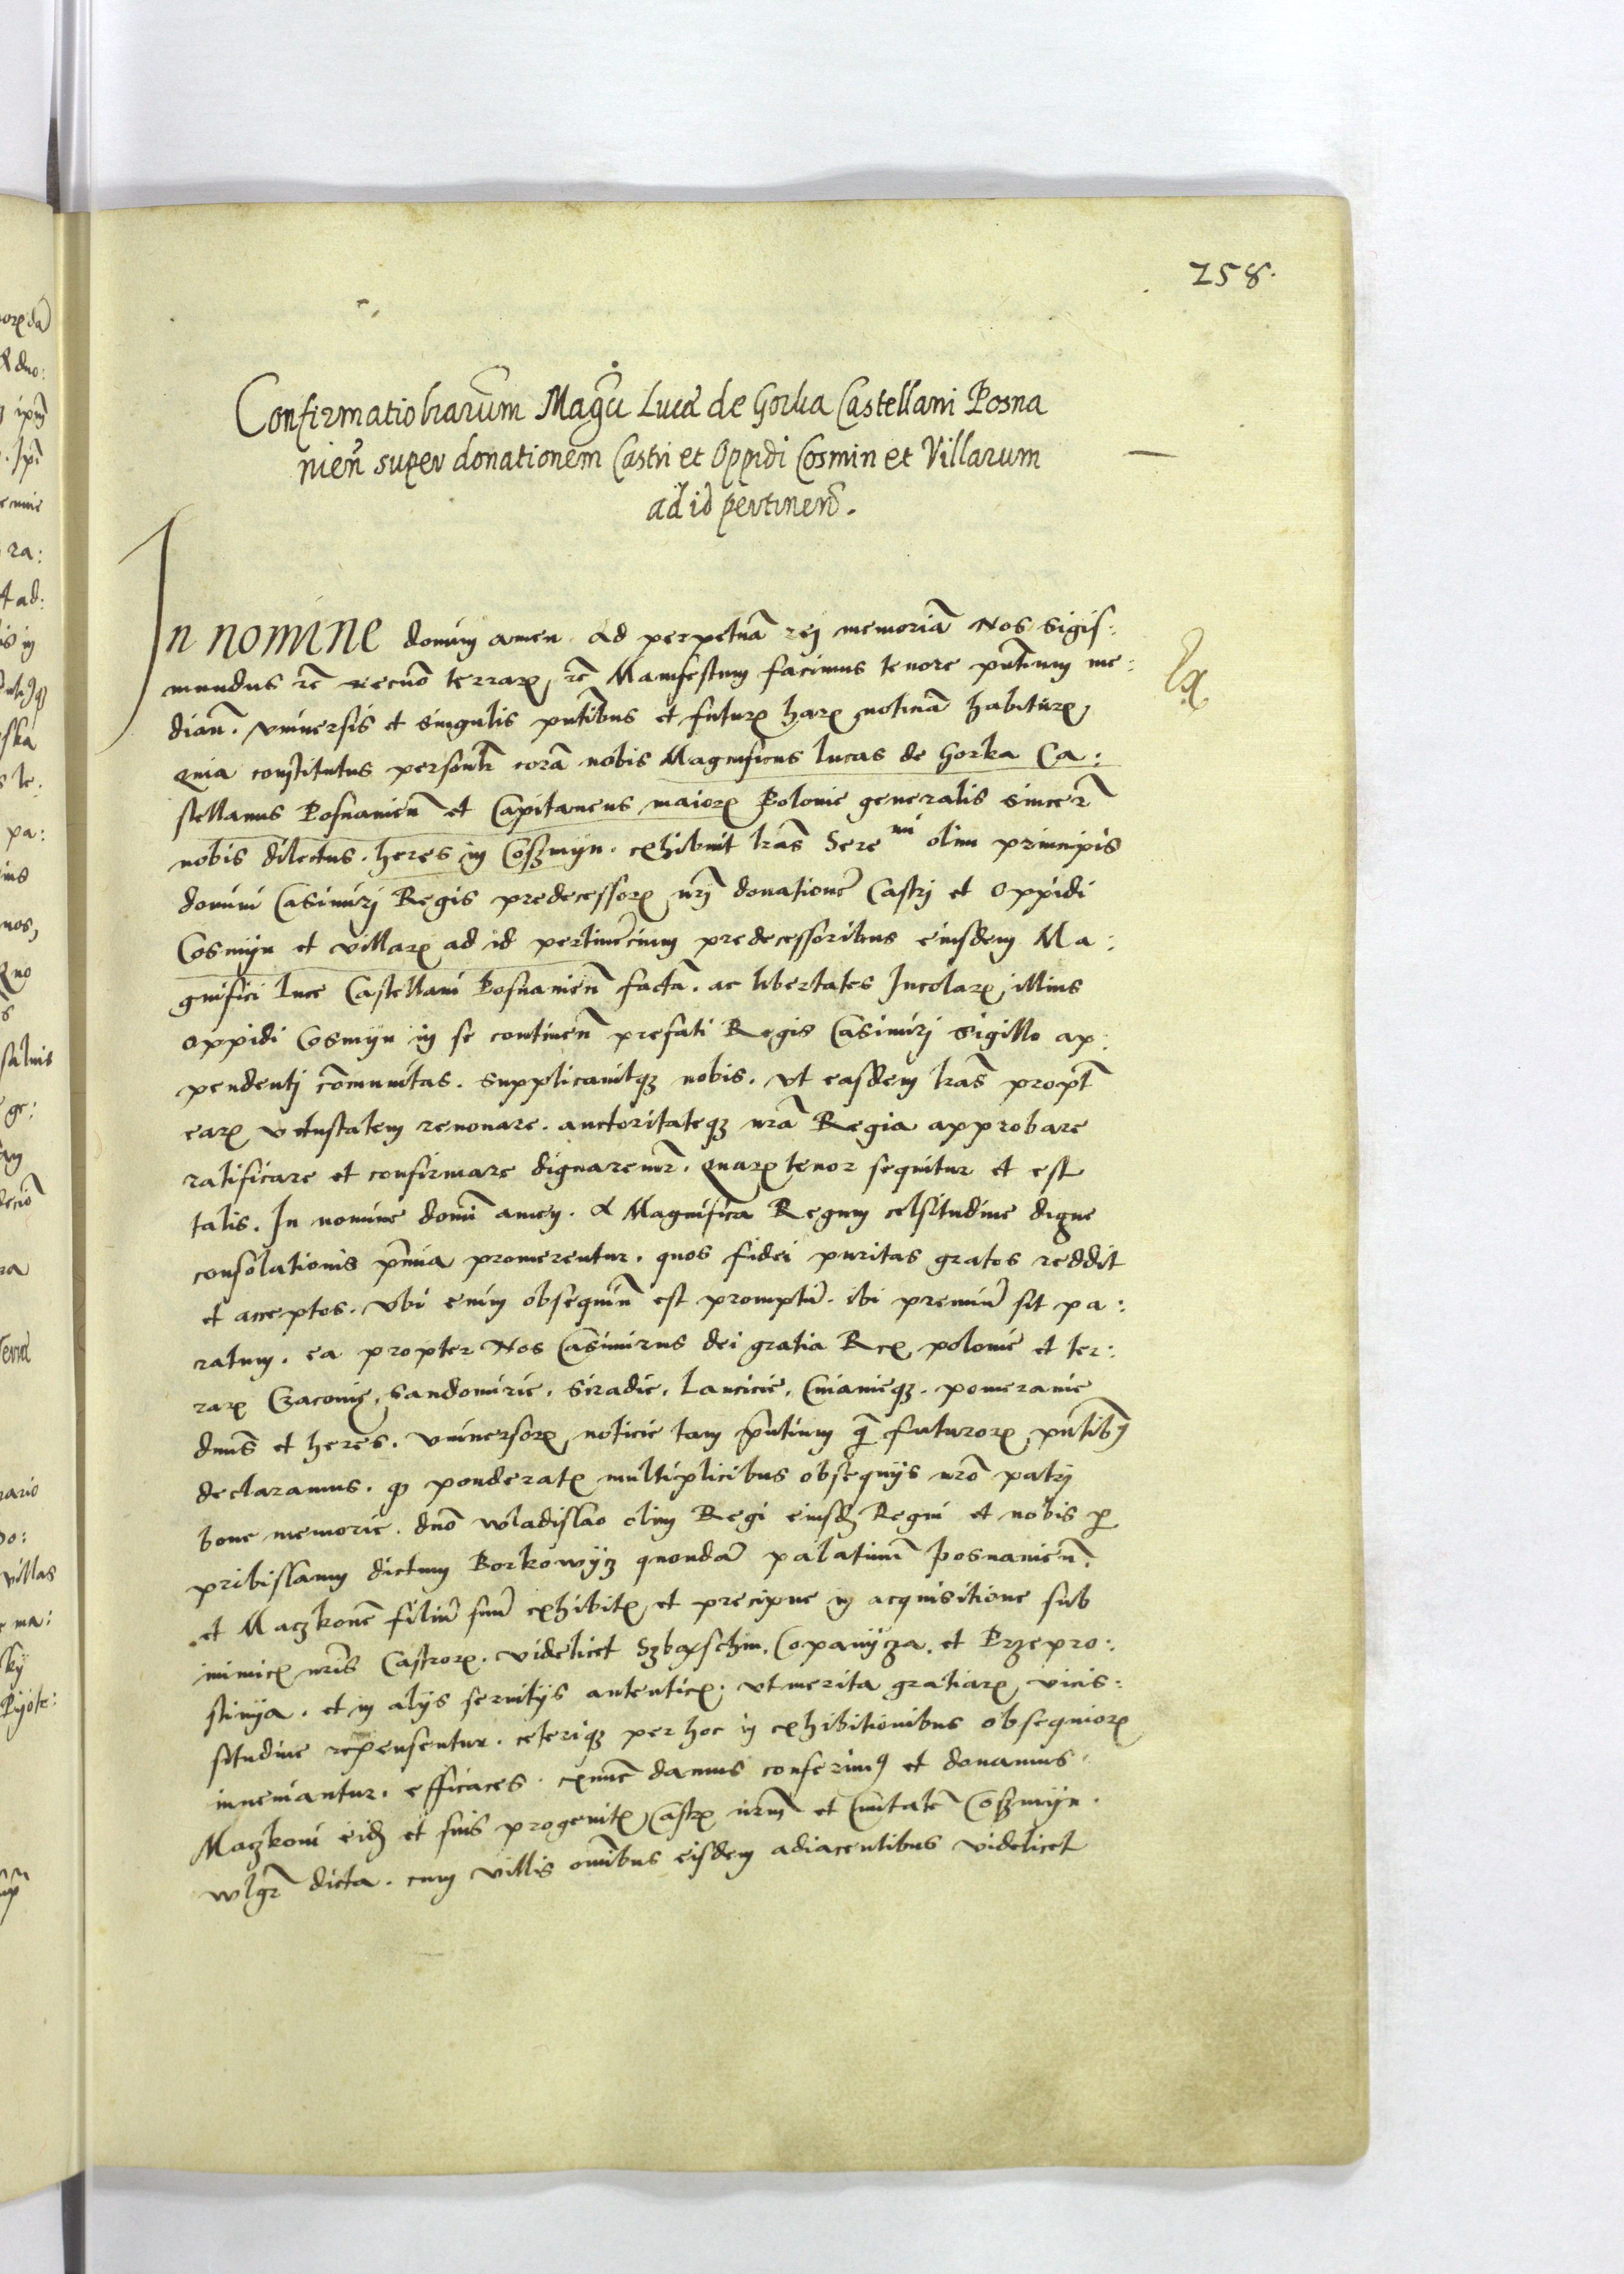 258.
Confirmatio lrarum Magci Luce de Gorka Castellani Posna
nien super donationem Castri et Oppidi Cosmin et Villarum
ad id pertinen.
In nomine domini amen. Ad perpetuã rej memoriã Nos Sigis:
mundus rc̃ necnõ terrarꝝ rc̃ Manifestum facimus tenore pñtium me:
dian̄. vniuersis et singulis pñtibus et futurꝝ harꝝ noticiã habiturꝝ
Quia constitutus personlr corã nobis Magnificus lucas de Gorka Ca:
stellanus Posnanien̄ et Capitaneus maiorꝝ Polonie generalis sincerr̃
nobis dilectus. heres in Coszmyn. exhibuit lrãs Sereᵐⁱ olim principis
domini Casimirj Regis predecessorꝝ nrj donationẽ Castrj et Oppidi
Cosmyn et villarꝝ ad id pertinẽcium predecessoribus eiusdem Ma:
gnifici luce Castellani Posnanien̄ factã. ac libertates Incolarꝝ illius
oppidi Cosmyn in se continen̄ prefati Regis Casimirj Sigillo ap:
pendentj cõmunitas. Supplicauitqꝫ nobis. vt easdem lrãs propt̃
earꝝ vetustatem renouare. auctoritateqꝫ nrã Regia approbare
ratificare et confirmare dignaremr̃. Quarꝝ tenor sequitur et est
talis. In nomine domĩ amen. A Magnifica Regum celsitudine digne
consolationis p̃mia promerentur. quos fidei puritas gratos reddit
et acceptos. Vbi enim obsequiũ est promptũ. ibi premiũ sit pa:
ratum. ea propter Nos Casimirus dei gratia Rex polonie et ter:
rarꝝ Cracouie, Sandomirie. Siradie. Lancicie. Cuiauieqꝫ. pomeranie
dnus et heres. vniuersorꝝ noticie tam pñtium q̃ futurorꝝ pñtibꝫ
declaramus. ꝙ ponderatꝭ multiplicibus obsequijs nrõ patrj
bone memorie. dnõ wladislao olim Regi eiusdẽ Regni et nobis ꝑ
pribislaum dictum Borkowycz quondã palatinũ posnanien̄.
et Maczkonẽ filiũ suũ exhibitꝭ et precipue in acquisitione sub
inimicꝭ nrĩs Castrorꝝ. videlicet Szbaschin. Copanycza. et Przepro:
stinya. et in alijs seruitijs autenticꝭ. vt merita gratiarꝝ vicis:
situdine repensentur. ceteriqꝫ per hoc in exhibitionibus obsequiorꝝ
inueniantur. efficaces. exnũc damus conferimꝰ et donamus.
Maczkoni eidẽ et suis progenitꝭ Castrꝭ nrm̃ et Ciuitatẽ Coszmyn.
wlgr̃ dicta. cum villis omĩbus eisdem adiacentibus videlicet